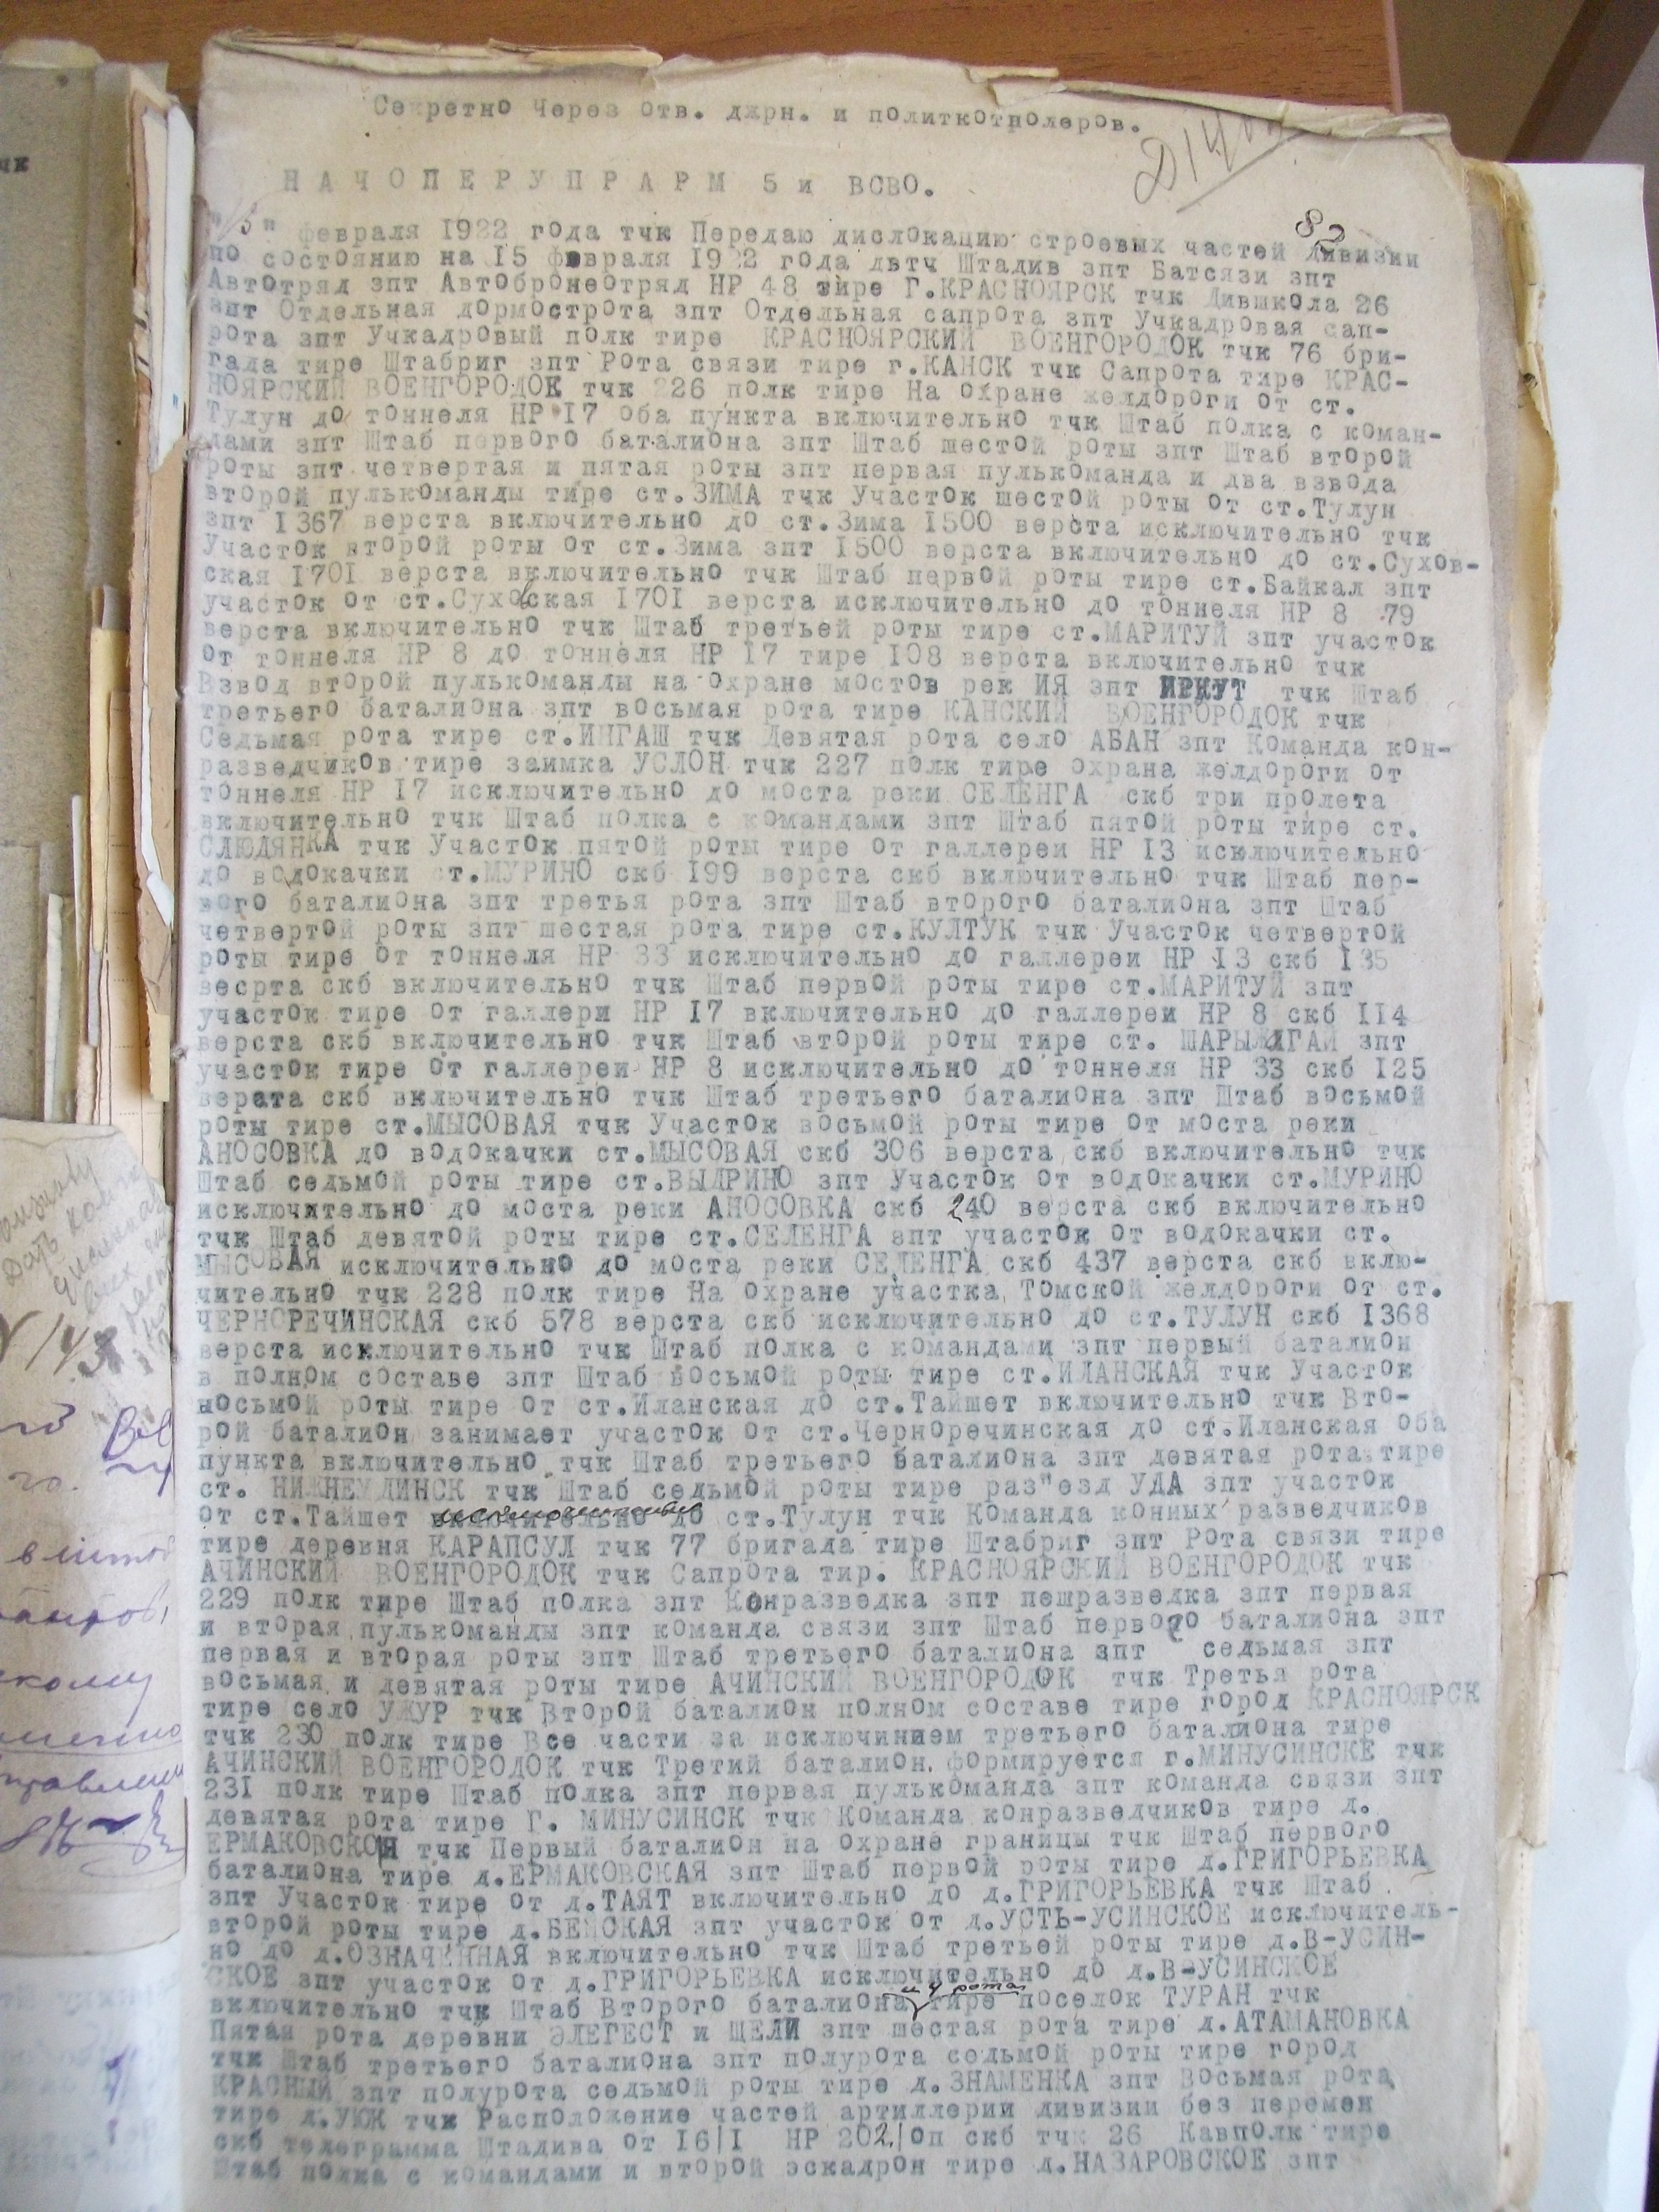 Секретно Через отв. джрн. и политкотнолеров.
НАЧОПЕРУПРАРМ 5 и ВСВО.
82
февраля 1922 года тчк Передаю дислокацию строевых частей дивизии
по состоянию на 15 февраля 1922 года двтч Штадив зпт Батсязи зпт
Автотряд зпт Автобронеотряд НР 48 тире Г.КРАСНОЯРСК тчк Дившкола 26
зпт Отдельная дормострота зпт Отдельная сапрота зпт Учкадровая сап-
рота зпт Учкадровый полк тире КРАСНОЯРСКИЙ ВОЕНГОРОДОК тчк 76 бри-
гада тире Штабриг зпт Рота связи тире г.КАНСК тчк Сапрота тире КРАС-
НОЯРСКИЙ ВОЕНГОРОДОК тчк 226 полк тире На охране желдороги от ст.
Тулун до тоннеля НР 17 оба пункта включительно тчк Штаб полка с коман-
дами зпт Штаб первого баталиона зпт Штаб шестой роты зпт Штаб второй
роты зпт четвертая и пятая роты зпт первая пулькоманда и два взвода
второй пулькоманды тире ст.ЗИМА тчк Участок шестой роты от ст.Тулун
зпт 1367 верста включительно до ст.Зима 1500 верста исключительно тчк
Участок второй роты от ст.Зима зпт 1500 верста включительно до ст.Сухов-
ская 1701 верста включительно тчк Штаб первой роты тире ст.Байкал зпт
участок от ст.Суховская 1701 верста исключительно до тоннеля НР 8 79
верста включительно тчк Штаб третьей роты тире ст.МАРИТУЙ зпт участок
от тоннеля НР 8 до тоннеля НР 17 тире 108 верста включительно тчк
Взвод второй пулькоманды на охране мостов рек ИЯ зпт ИРКУТ тчк Штаб
третьего баталиона зпт восьмая рота тире КАНСКИЙ ВОЕНГОРОДОК тчк
Седьмая рота тире ст.ИНГАШ тчк Девятая рота село АБАН зпт Команда кон-
разведчиков тире заимка УСЛОН тчк 227 полк тире охрана желдороги от
тоннеля НР 17 исключительно до моста реки СЕЛЕНГА скб три пролета
включительно тчк Штаб полка с командами зпт Штаб пятой роты тире ст.
СЛЮДЯНКА тчк Участок пятой роты тире от галлереи НР 13 исключительно
до водокачки ст.МУРИНО скб 199 верста скб включительно тчк Штаб пер-
вого баталиона зпт третья рота зпт Штаб второго баталиона зпт Штаб
четвертой роты зпт шестая рота тире ст.КУЛТУК тчк Участок четвертой
роты тире от тоннеля НР 33 исключительно до галлереи НР 13 скб 135
весрта скб включительно тчк Штаб первой роты тире ст.МАРИТУЙ зпт
участок тире от галлери НР 17 включительно до галлереи НР 8 скб 114
верста скб включительно тчк Штаб второй роты тире ст. ШАРЫЖИГАЙ зпт
участок тире от галлереи НР 8 исключительно до тоннеля НР 33 скб 125
верата скб включительно тчк Штаб третьего баталиона зпт Штаб восьмой
роты тире ст.МЫСОВАЯ тчк Участок восьмой роты тире от моста реки
АНОСОВКА до водокачки ст.МЫСОВАЯ скб 306 верста скб включительно тчк
Штаб седьмой роты тире ст.ВЫДРИНО зпт Участок от водокачки ст.МУРИНО
исключительно до моста реки АНОСОВКА скб 240 верста скб включительно
тчк Штаб девятой роты тире ст.СЕЛЕНГА зпт участок от водокачки ст.
МЫСОВАЯ исключительно до моста реки СЕЛЕНГА скб 437 верста скб вклю-
чительно тчк 228 полк тире На охране участка Томской желдороги от ст.
ЧЕРНОРЕЧИНСКАЯ скб 578 верста скб исключительно до ст.ТУЛУН скб 1368
верста исключительно тчк Штаб полка с командами зпт первый баталион
в полном составе зпт Штаб восьмой роты тире ст.ИЛАНСКАЯ тчк Участок
восьмой роты тире от ст.Иланская до ст.Тайшет включительно тчк Вто-
рой баталион занимает участок от ст.Черноречинская до ст.Иланская оба
пункта включительно тчк Штаб третьего баталиона зпт девятая рота тире
ст. НИЖНЕУДИНСК тчк Штаб седьмой роты тире раз"езд УДА зпт участок
исключительно
от ст.Тайшет включительно до ст.Тулун тчк Команда конных разведчиков
тире деревня КАРАПСУЛ тчк 77 бригада тире Штабриг зпт Рота связи тире
АЧИНСКИЙ ВОЕНГОРОДОК тчк Сапрота тир. КРАСНОЯРСКИЙ ВОЕНГОРОДОК тчк
229 полк тире Штаб полка зпт Конразведка зпт пешразведка зпт первая
и вторая пулькоманды зпт команда связи зпт Штаб первого баталиона зпт
первая и вторая роты зпт Штаб третьего баталиона зпт седьмая зпт
восьмая и девятая роты тире АЧИНСКИЙ ВОЕНГОРОДОК тчк Третья рота
тире село УЖУР тчк Второй баталион полном составе тире город КРАСНОЯРСК
тчк 230 полк тире Все части за исключинием третьего баталиона тире
АЧИНСКИЙ ВОЕНГОРОДОК тчк Третий баталион формируется г.МИНУСИНСКЕ тчк
231 полк тире Штаб полка зпт первая пулькоманда зпт команда связи зпт
девятая рота тире Г. МИНУСИНСК тчк Команда конразведчиков тире д.
ЕРМАКОВСКОЙ тчк Первый баталион на охране границы тчк Штаб первого
баталиона тире д.ЕРМАКОВСКАЯ зпт Штаб первой роты тире д.ГРИГОРЬЕВКА
зпт Участок тире от д.ТАЯТ включительно до д.ГРИГОРЬЕВКА тчк Штаб
второй роты тире д.БЕЙСКАЯ зпт участок от д.УСТЬ-УСИНСКОЕ исключитель-
но до д.ОЗНАЧЕННАЯ включительно тчк Штаб третьей роты тире д.В-УСИН-
СКОЕ зпт участок от д.ГРИГОРЬЕВКА исключительно до д.В-УСИНСКОЕ
и 4 рота
включительно тчк Штаб Второго баталиона тире поселок ТУРАН тчк
Пятая рота деревни ЭЛЕГЕСТ и ЩЕЛИ зпт шестая рота тире д.АТАМАНОВКА
тчк Штаб третьего баталиона зпт полурота седьмой роты тире город
КРАСНЫЙ зпт полурота седьмой роты тире д.ЗНАМЕНКА зпт Восьмая рота
тире д.УЮК тчк Расположение частей артиллерии дивизии без перемен
скб телеграмма Штадива от 16/1 НР 202/оп скб тчк 26 Кавполк тире
Штаб полка с командами и второй эскадрон тире д.НАЗАРОВСКОЕ зпт